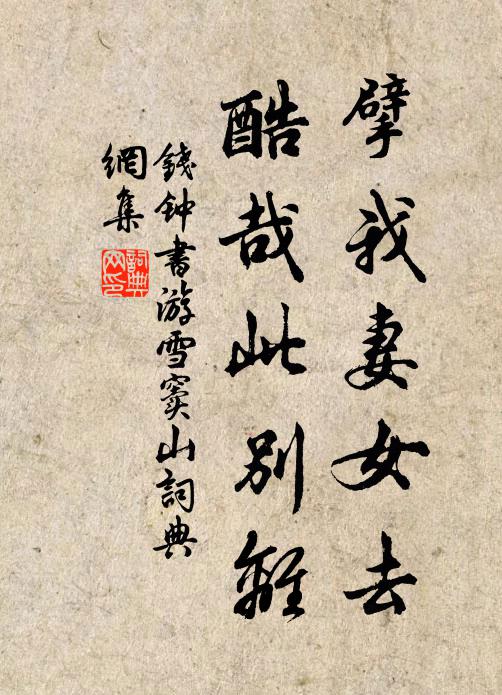 擘我妻女去
酷哉此別離
錢钟書游雪窦山詞典
網集
詞典网印